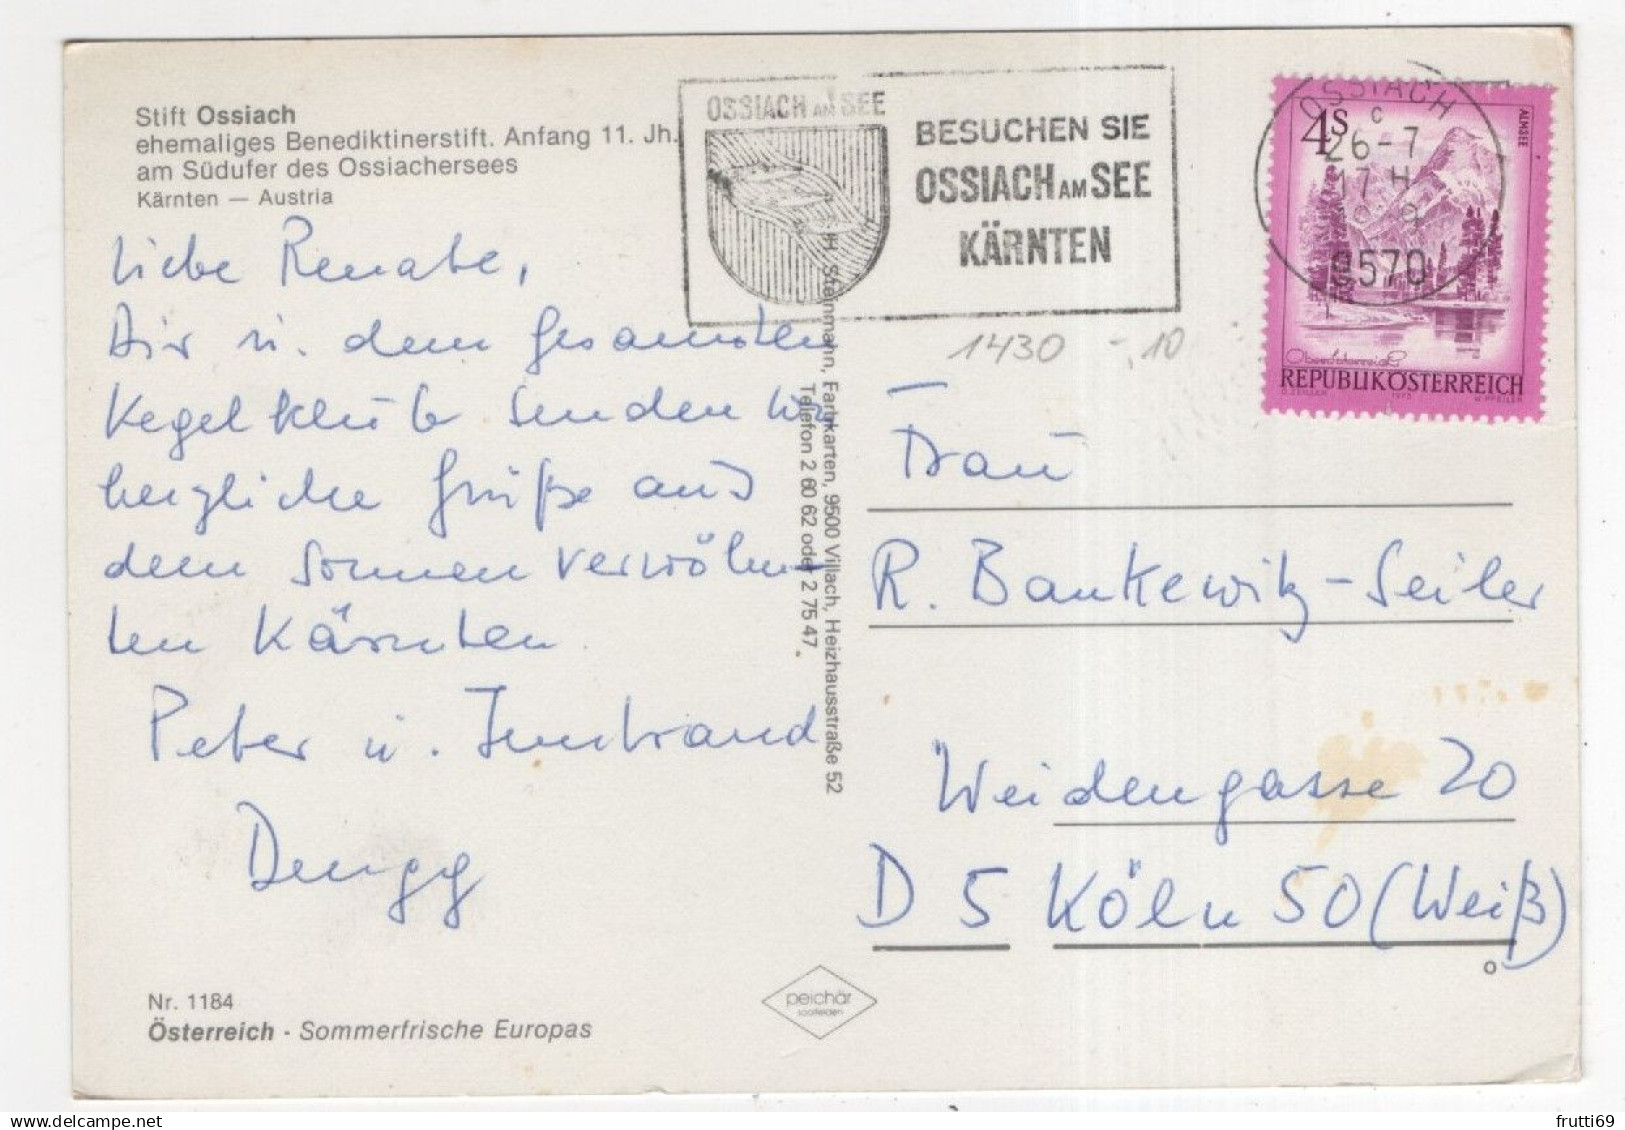 Stift Ossiach
ehemaliges Benediktinerstift. Anfang 11. Jh.
am Südufer des Ossiachersees
Kärnten — Austria
Liebe Renate,
Dir u. dem gesamten
Kegelklub senden wir
herzliche Grüße aus
dem sonnenverwöhn-
ten Kärnten
Peter u. Irmtraud
Dengg
Nr. 1184
Österreich - Sommerfrische Europas
H. Steinmann, Farbkarten, 9500 Villach, Heizhausstraße 52
Telefon 2 60 62 oder 2 75 47
peichär
saalfelden
OSSIACH AM SEE
BESUCHEN SIE
OSSIACH AM SEE
KÄRNTEN
OSSIACH
c
26-7
17 H
9570
4S
ALMSEE
Oberösterreich
REPUBLIK ÖSTERREICH
1430 -,10
Frau
R. Bankewitz-Seiler
Weidengasse 20
D 5 Köln 50 (Weiß)
frutti69